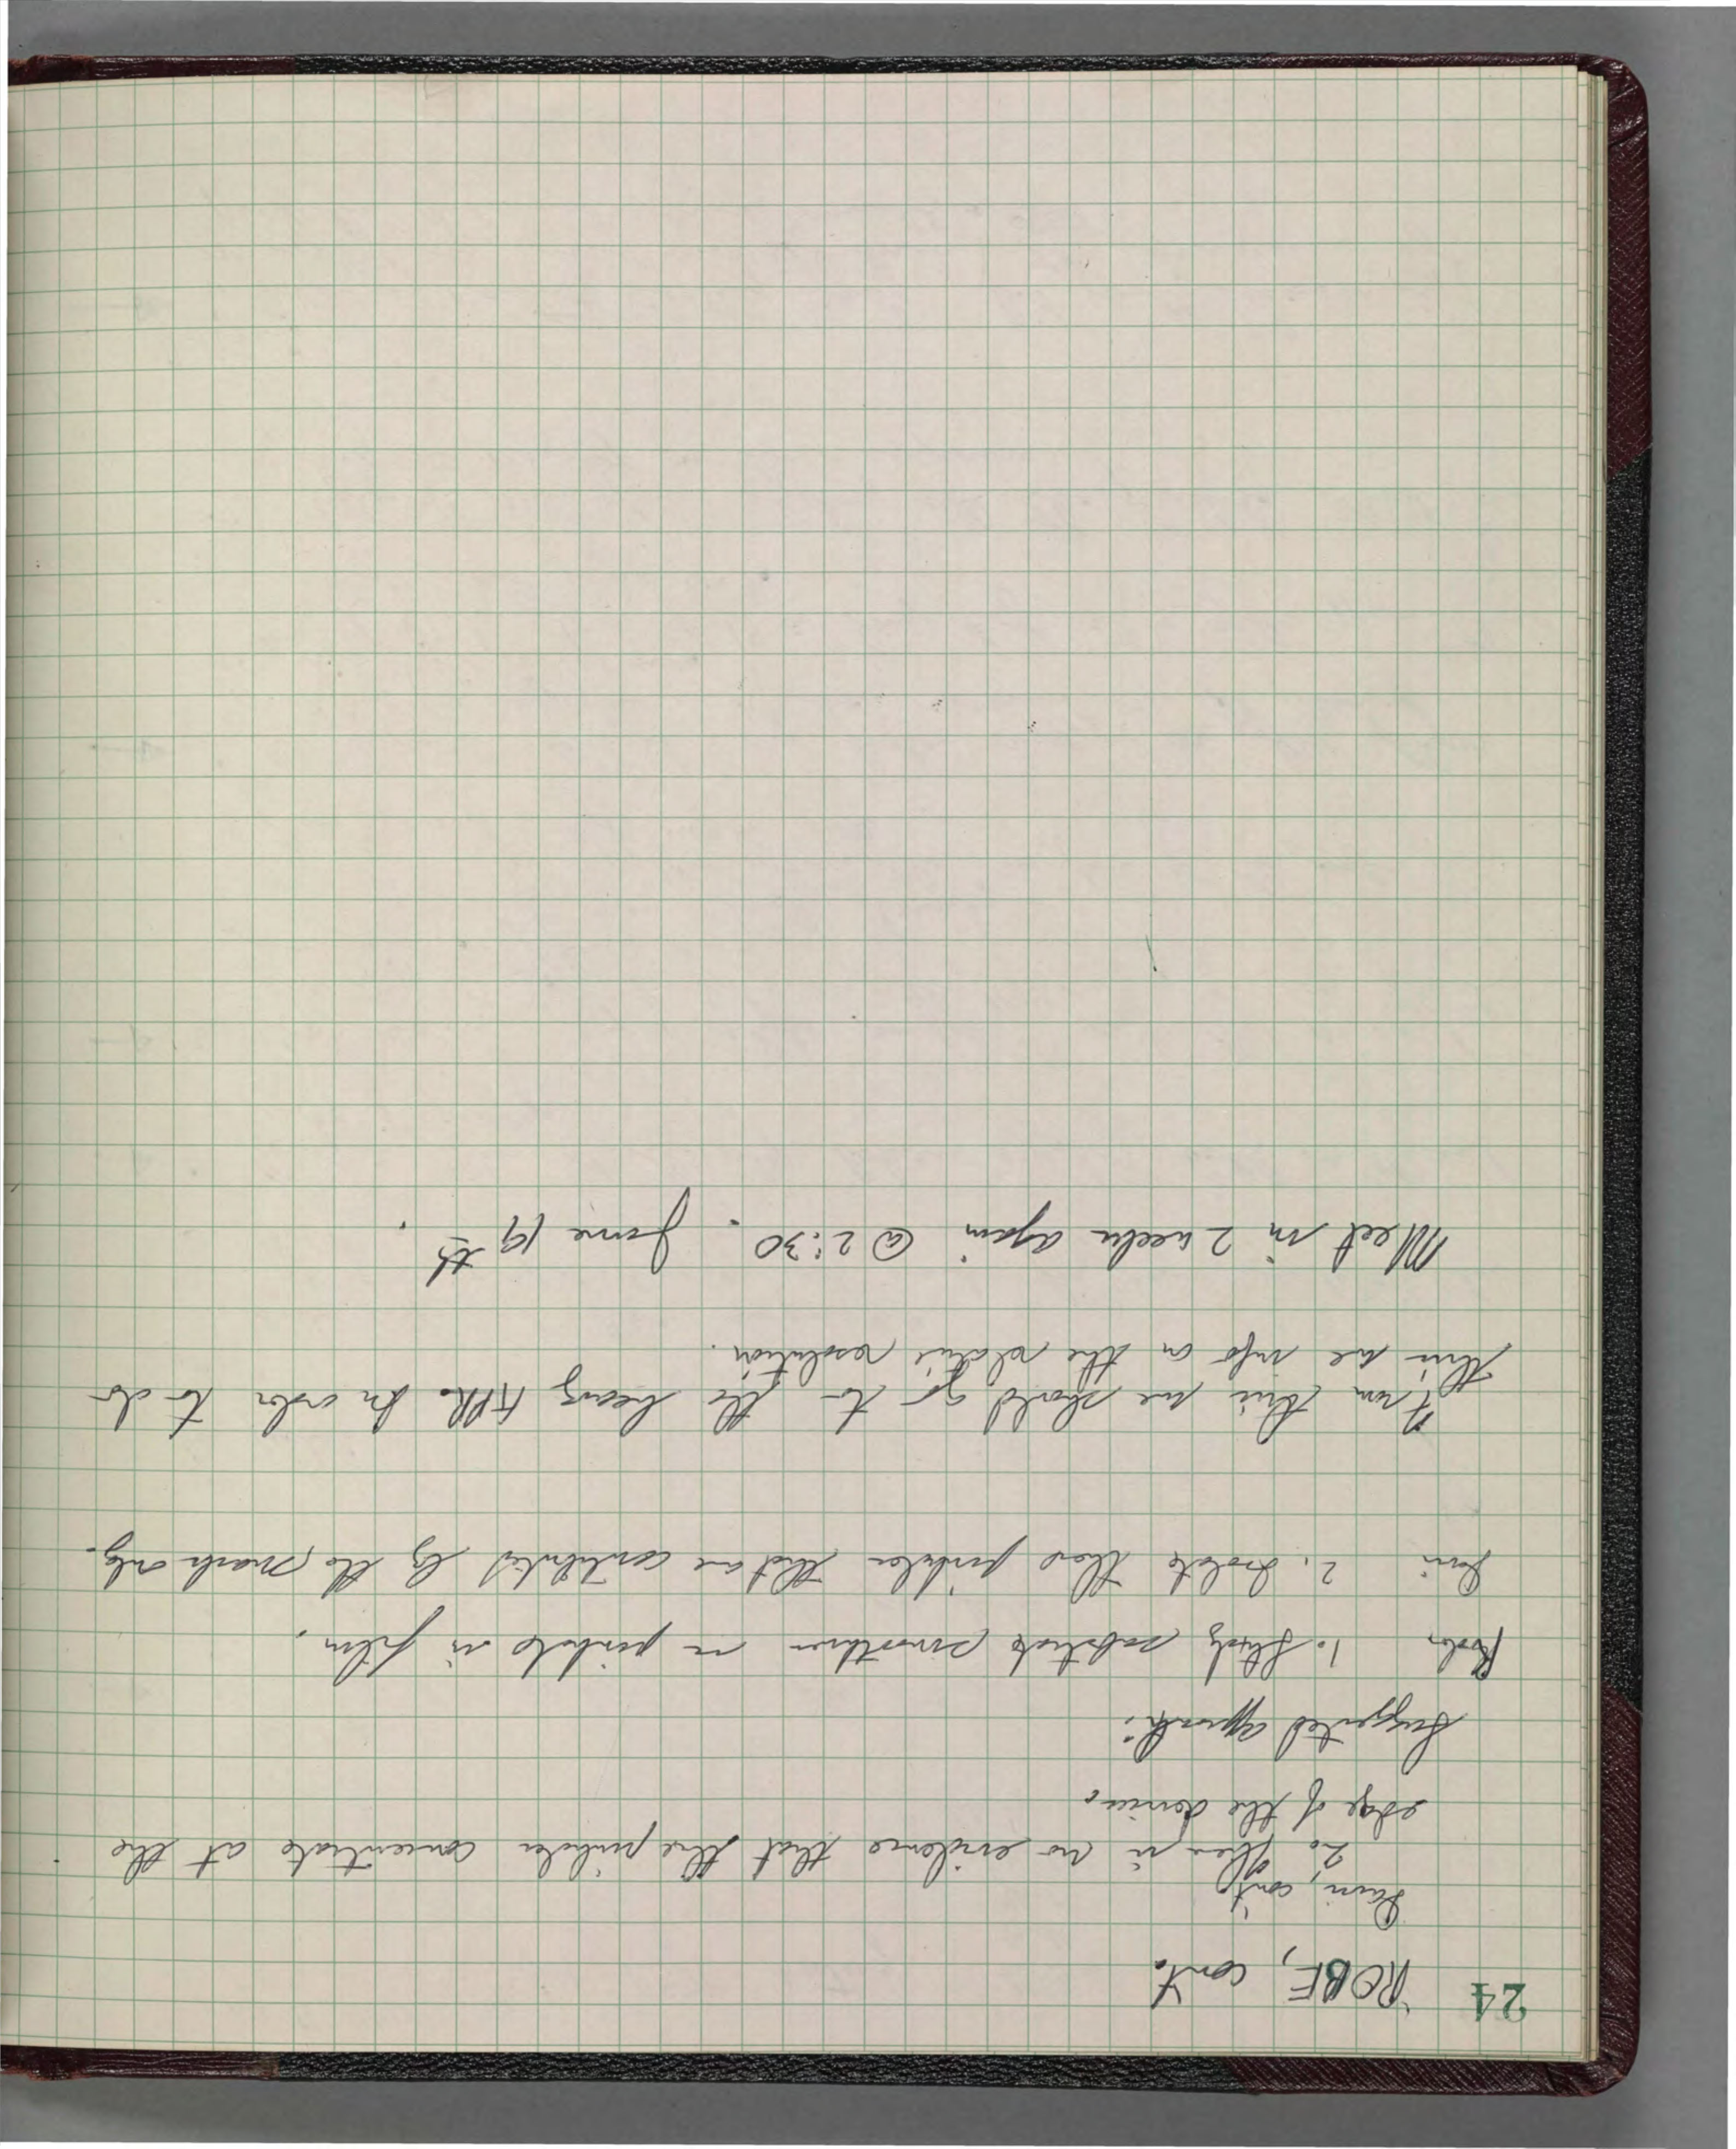 24 ROBE, cont.
cont.
2. There is no evidence that the pinholes concentrate at the
edge of the devices
Suggested approach:
1. Study substrate smoothness on pinhole in film.
2. Isolate those pinholes that are contributed by the mask only.
From this we should go to the heavy in order to do
this we info on the relative resolution.
Meet in 2 weeks again @ 2:30. June 19th.